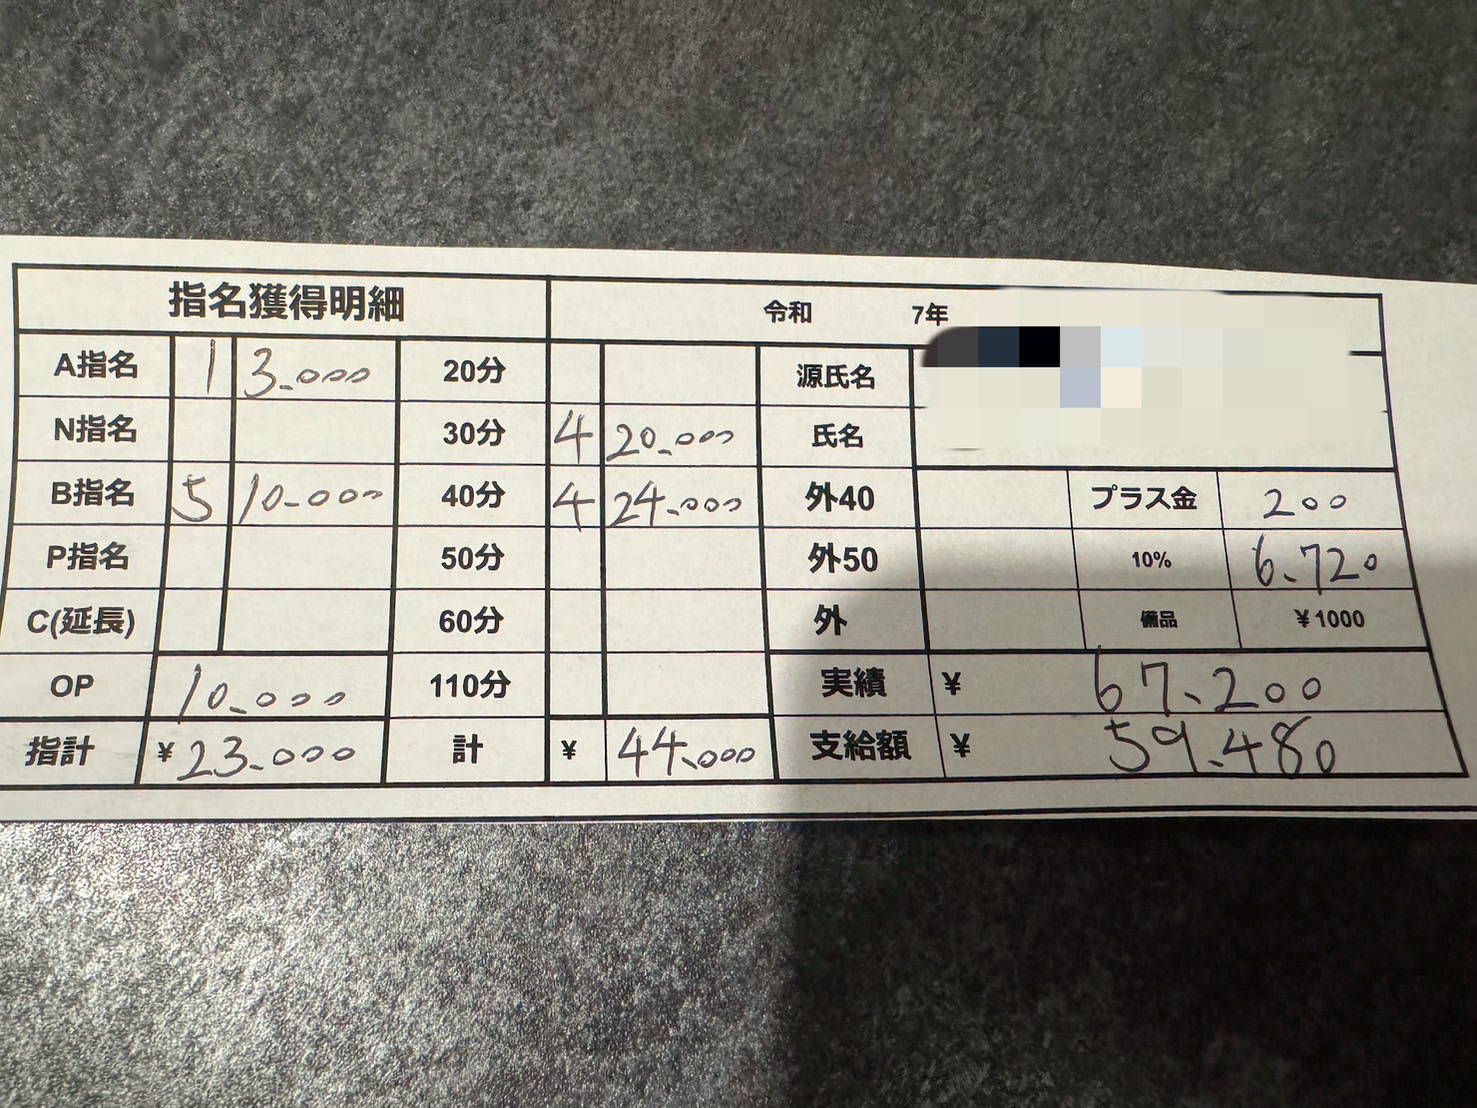 指名獲得明細 令和 7年
A指名 1 3.000 20分 源氏名
N指名 30分 4 20.000 氏名
B指名 5 10.000 40分 4 24.000 外40 プラス金 200
P指名 50分 外50 10% 6.720
C(延長) 60分 外 備品 ¥1000
OP 10.000 110分 実績 ¥ 67.200
指計 ¥23.000 計 ¥ 44.000 支給額 ¥ 59.480